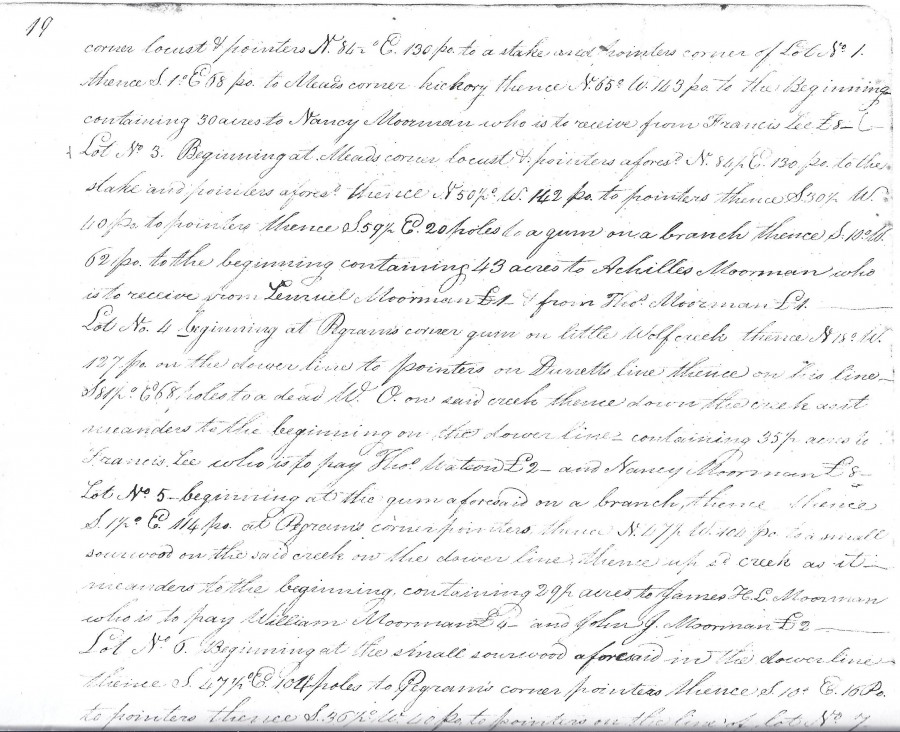 19
corner locust & pointers N. 84½° E. 130 po. to a stake and pointers corner of Lot No. 1.
thence S. 1° E 68 po. to Meads corner hickory thence N. 65° W. 143 po to the Beginning
containing 30 acres to Nancy Moorman who is to receive from Francis Lee £8–
Lot No 3. Beginning at Meads corner locust & pointers aforesd. N. 84½ E. 130 po. to the
stake and pointers aforesd. thence N 50½° W. 142 po. to pointers thence S. 30½ W.
40 po. to pointers thence S. 59½ E. 20 poles to a gum on a branch thence S. 10° W.
62 po. to the beginning containing 43 acres to Achilles Moorman who
is to receive from Lemuel Moorman £1 & from Thos. Moorman £1.
Lot No. 4 beginning at Pegram's corner gum on little Wolf creek thence N 18° W.
127 po. on the dower line to pointers on Durretts line thence on his line
S 81½° E 68 poles to a dead W. O. on said creek thence down the creek as it
meanders to the beginning on the dower line – containing 35½ acres to
Francis Lee who is to pay Thos. Watson £2 – and Nancy Moorman £8–
Lot No 5 – beginning at the gum aforesaid on a branch, thence thence
S. 1½° E. 114 po. at Pegram's corner pointers, thence N. 47½ W. 104 po. to a small
sourwood on the said creek on the dower line, thence up sd. creek as it
meanders to the beginning, containing 29½ acres to James H. L. Moorman
who is to pay William Moorman £4 – and John J. Moorman £2
Lot No. 6. Beginning at the small sourwood aforesaid in the dower line
thence S. 47½° E. 104 poles to Pegram's corner pointers thence S. 10° E. 16 Po.
to pointers thence S. 36½° W. 40 po. to pointers on the line of lot No. 7